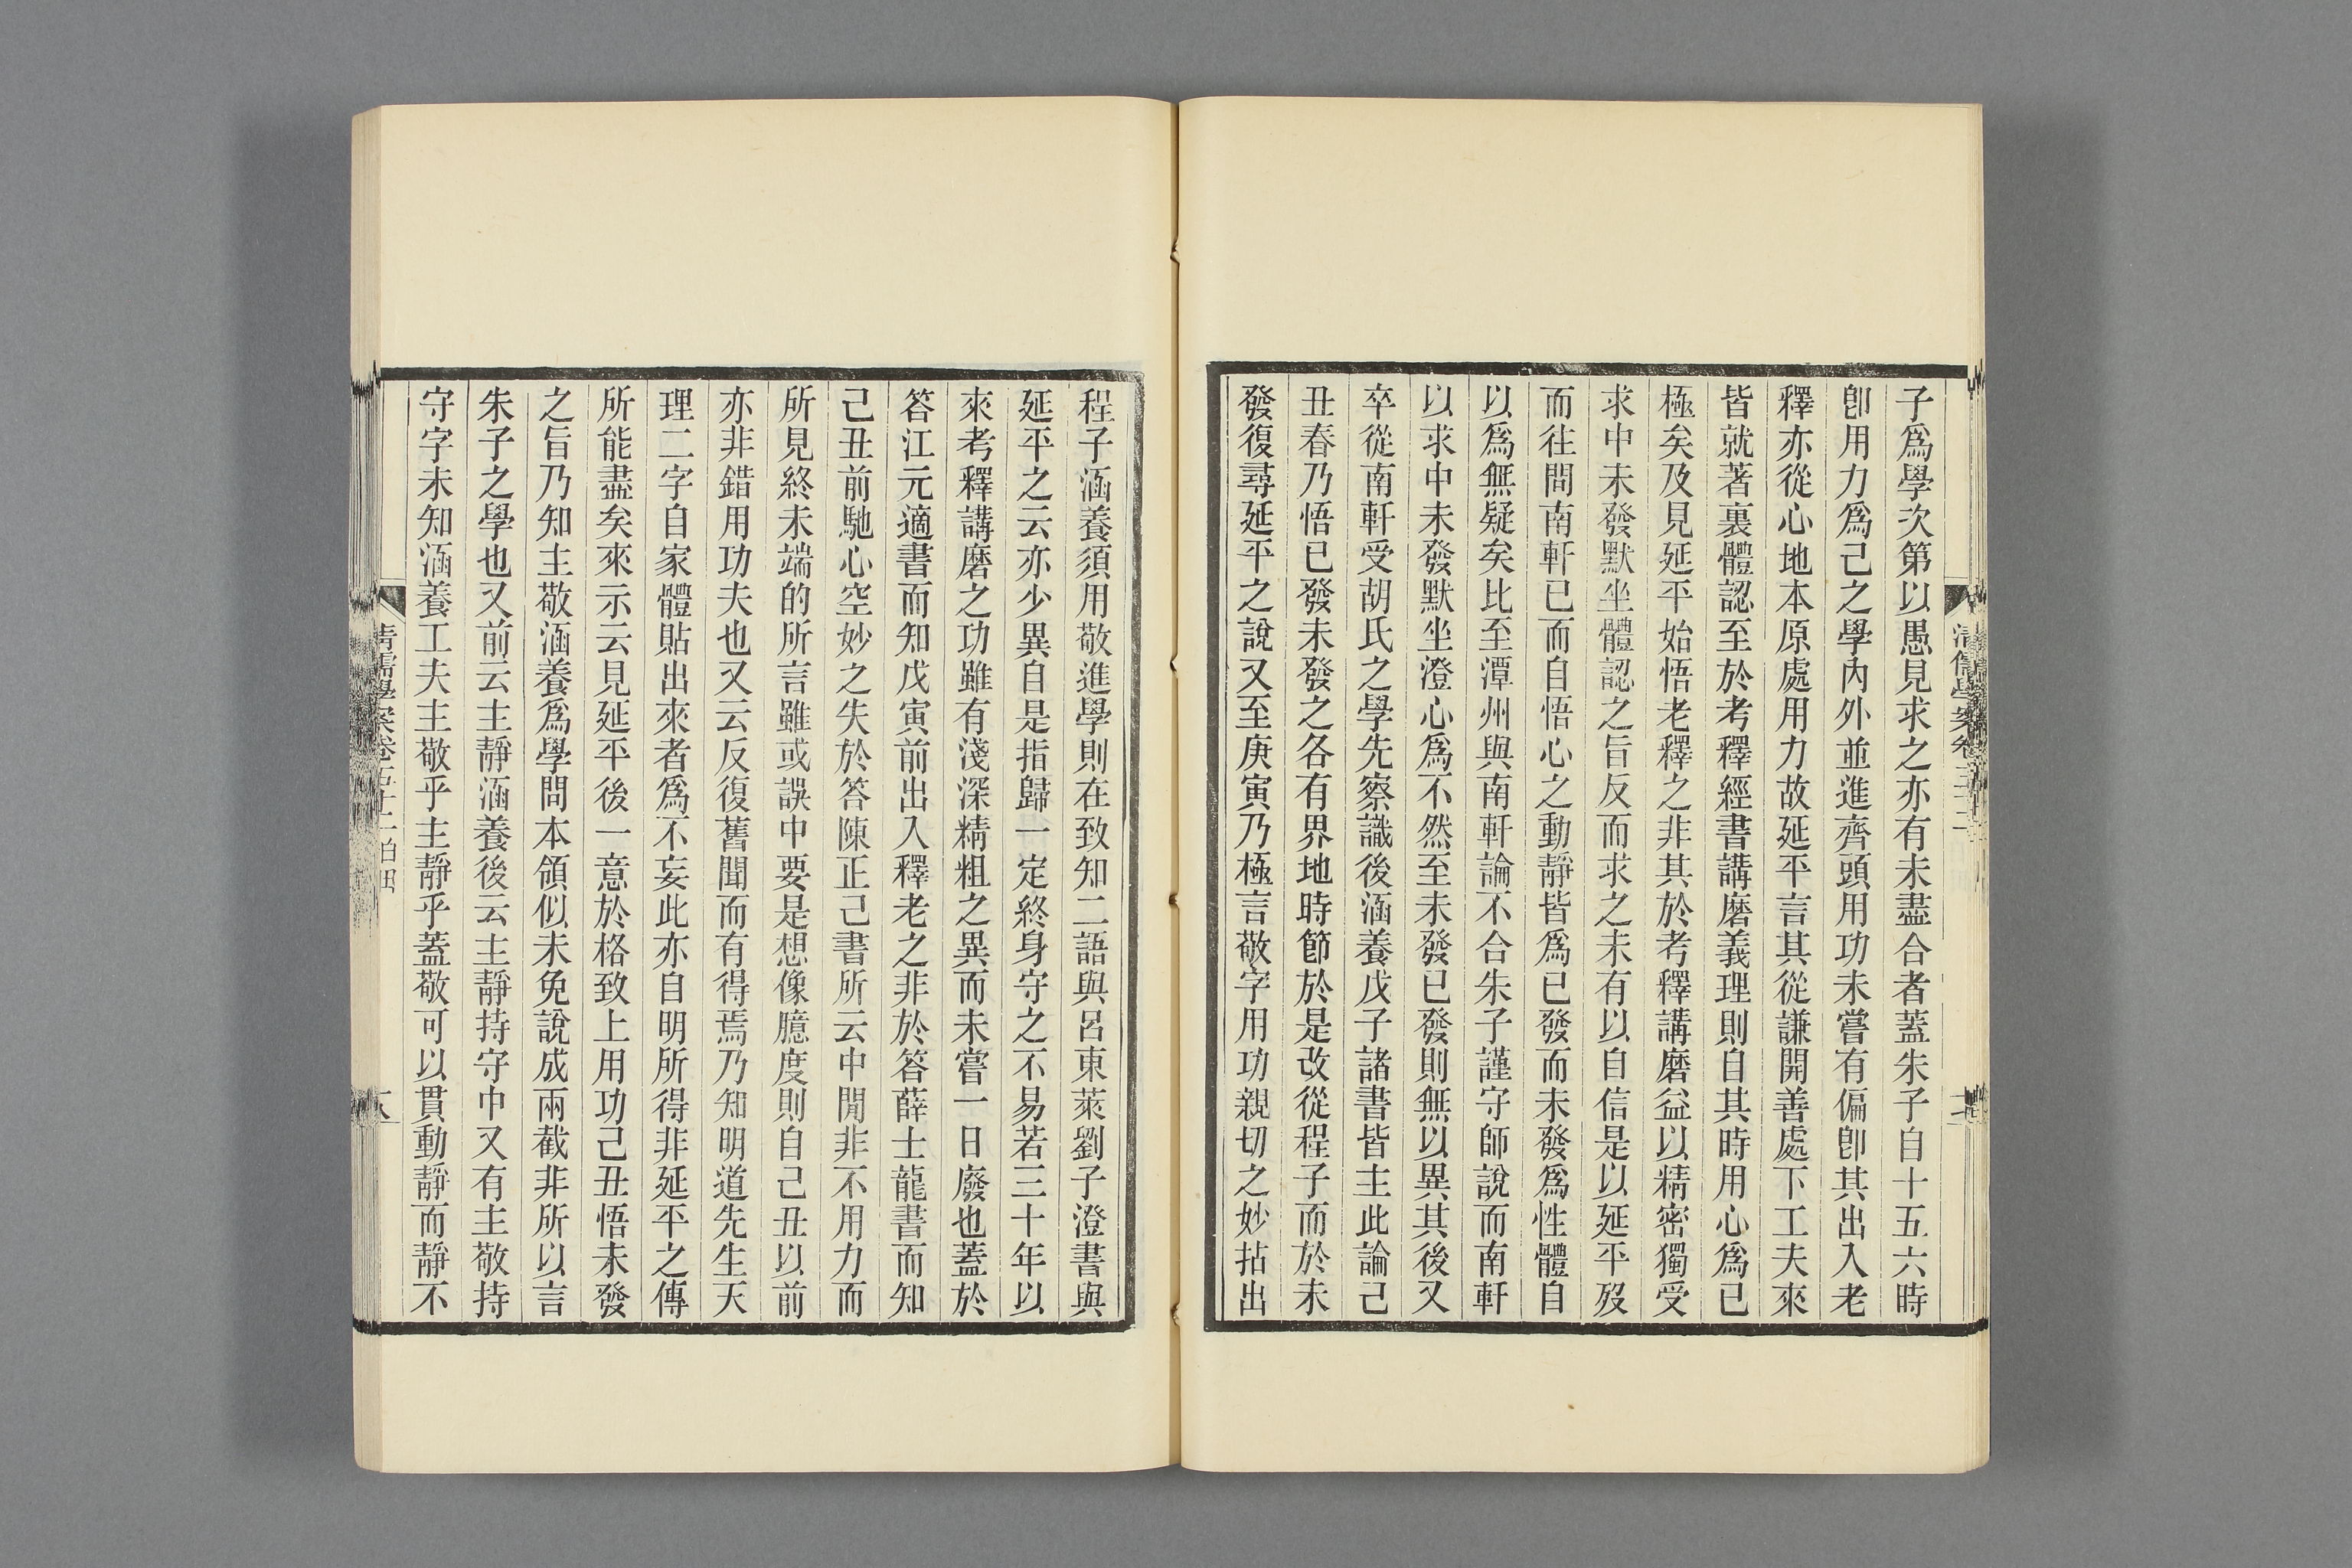 子爲學次第以愚見求之亦有未盡合者蓋朱子自十五六時
卽用力爲己之學內外並進齊頭用功未嘗有偏卽其出入老
釋亦從心地本原處用力故延平言其從謙開善處下工夫來
皆就著裏體認至於考釋經書講磨義理則自其時用心爲己
極矣及見延平始悟老釋之非其於考釋講磨益以精密獨受
求中未發默坐體認之旨反而求之未有以自信是以延平歿
而往問南軒已而自悟心之動靜皆爲已發而未發爲性體自
以爲無疑矣比至潭州與南軒論不合朱子謹守師說而南軒
以求中未發默坐澄心爲不然至未發已發則無以異其後又
卒從南軒受胡氏之學先察識後涵養戊子諸書皆主此論己
丑春乃悟已發未發之各有界地時節於是改從程子而於未
發復尋延平之說又至庚寅乃極言敬字用功親切之妙拈出
程子涵養須用敬進學則在致知二語與呂東萊劉子澄書與
延平之云亦少異自是指歸一定終身守之不易若三十年以
來考釋講磨之功雖有淺深精粗之異而未嘗一日廢也蓋於
答江元適書而知戊寅前出入釋老之非於答薛士龍書而知
己丑前馳心空妙之失於答陳正己書所云中閒非不用力而
所見終未端的所言雖或誤中要是想像臆度則自己丑以前
亦非錯用功夫也又云反復舊聞而有得焉乃知明道先生天
理二字自家體貼出來者爲不妄此亦自明所得非延平之傳
所能盡矣來示云見延平後一意於格致上用功己丑悟未發
之旨乃知主敬涵養爲學問本領似未免說成兩截非所以言
朱子之學也又前云主靜涵養後云主靜持守中又有主敬持
守字未知涵養工夫主敬乎主靜乎蓋敬可以貫動靜而靜不
清儒學案卷五十二 白田